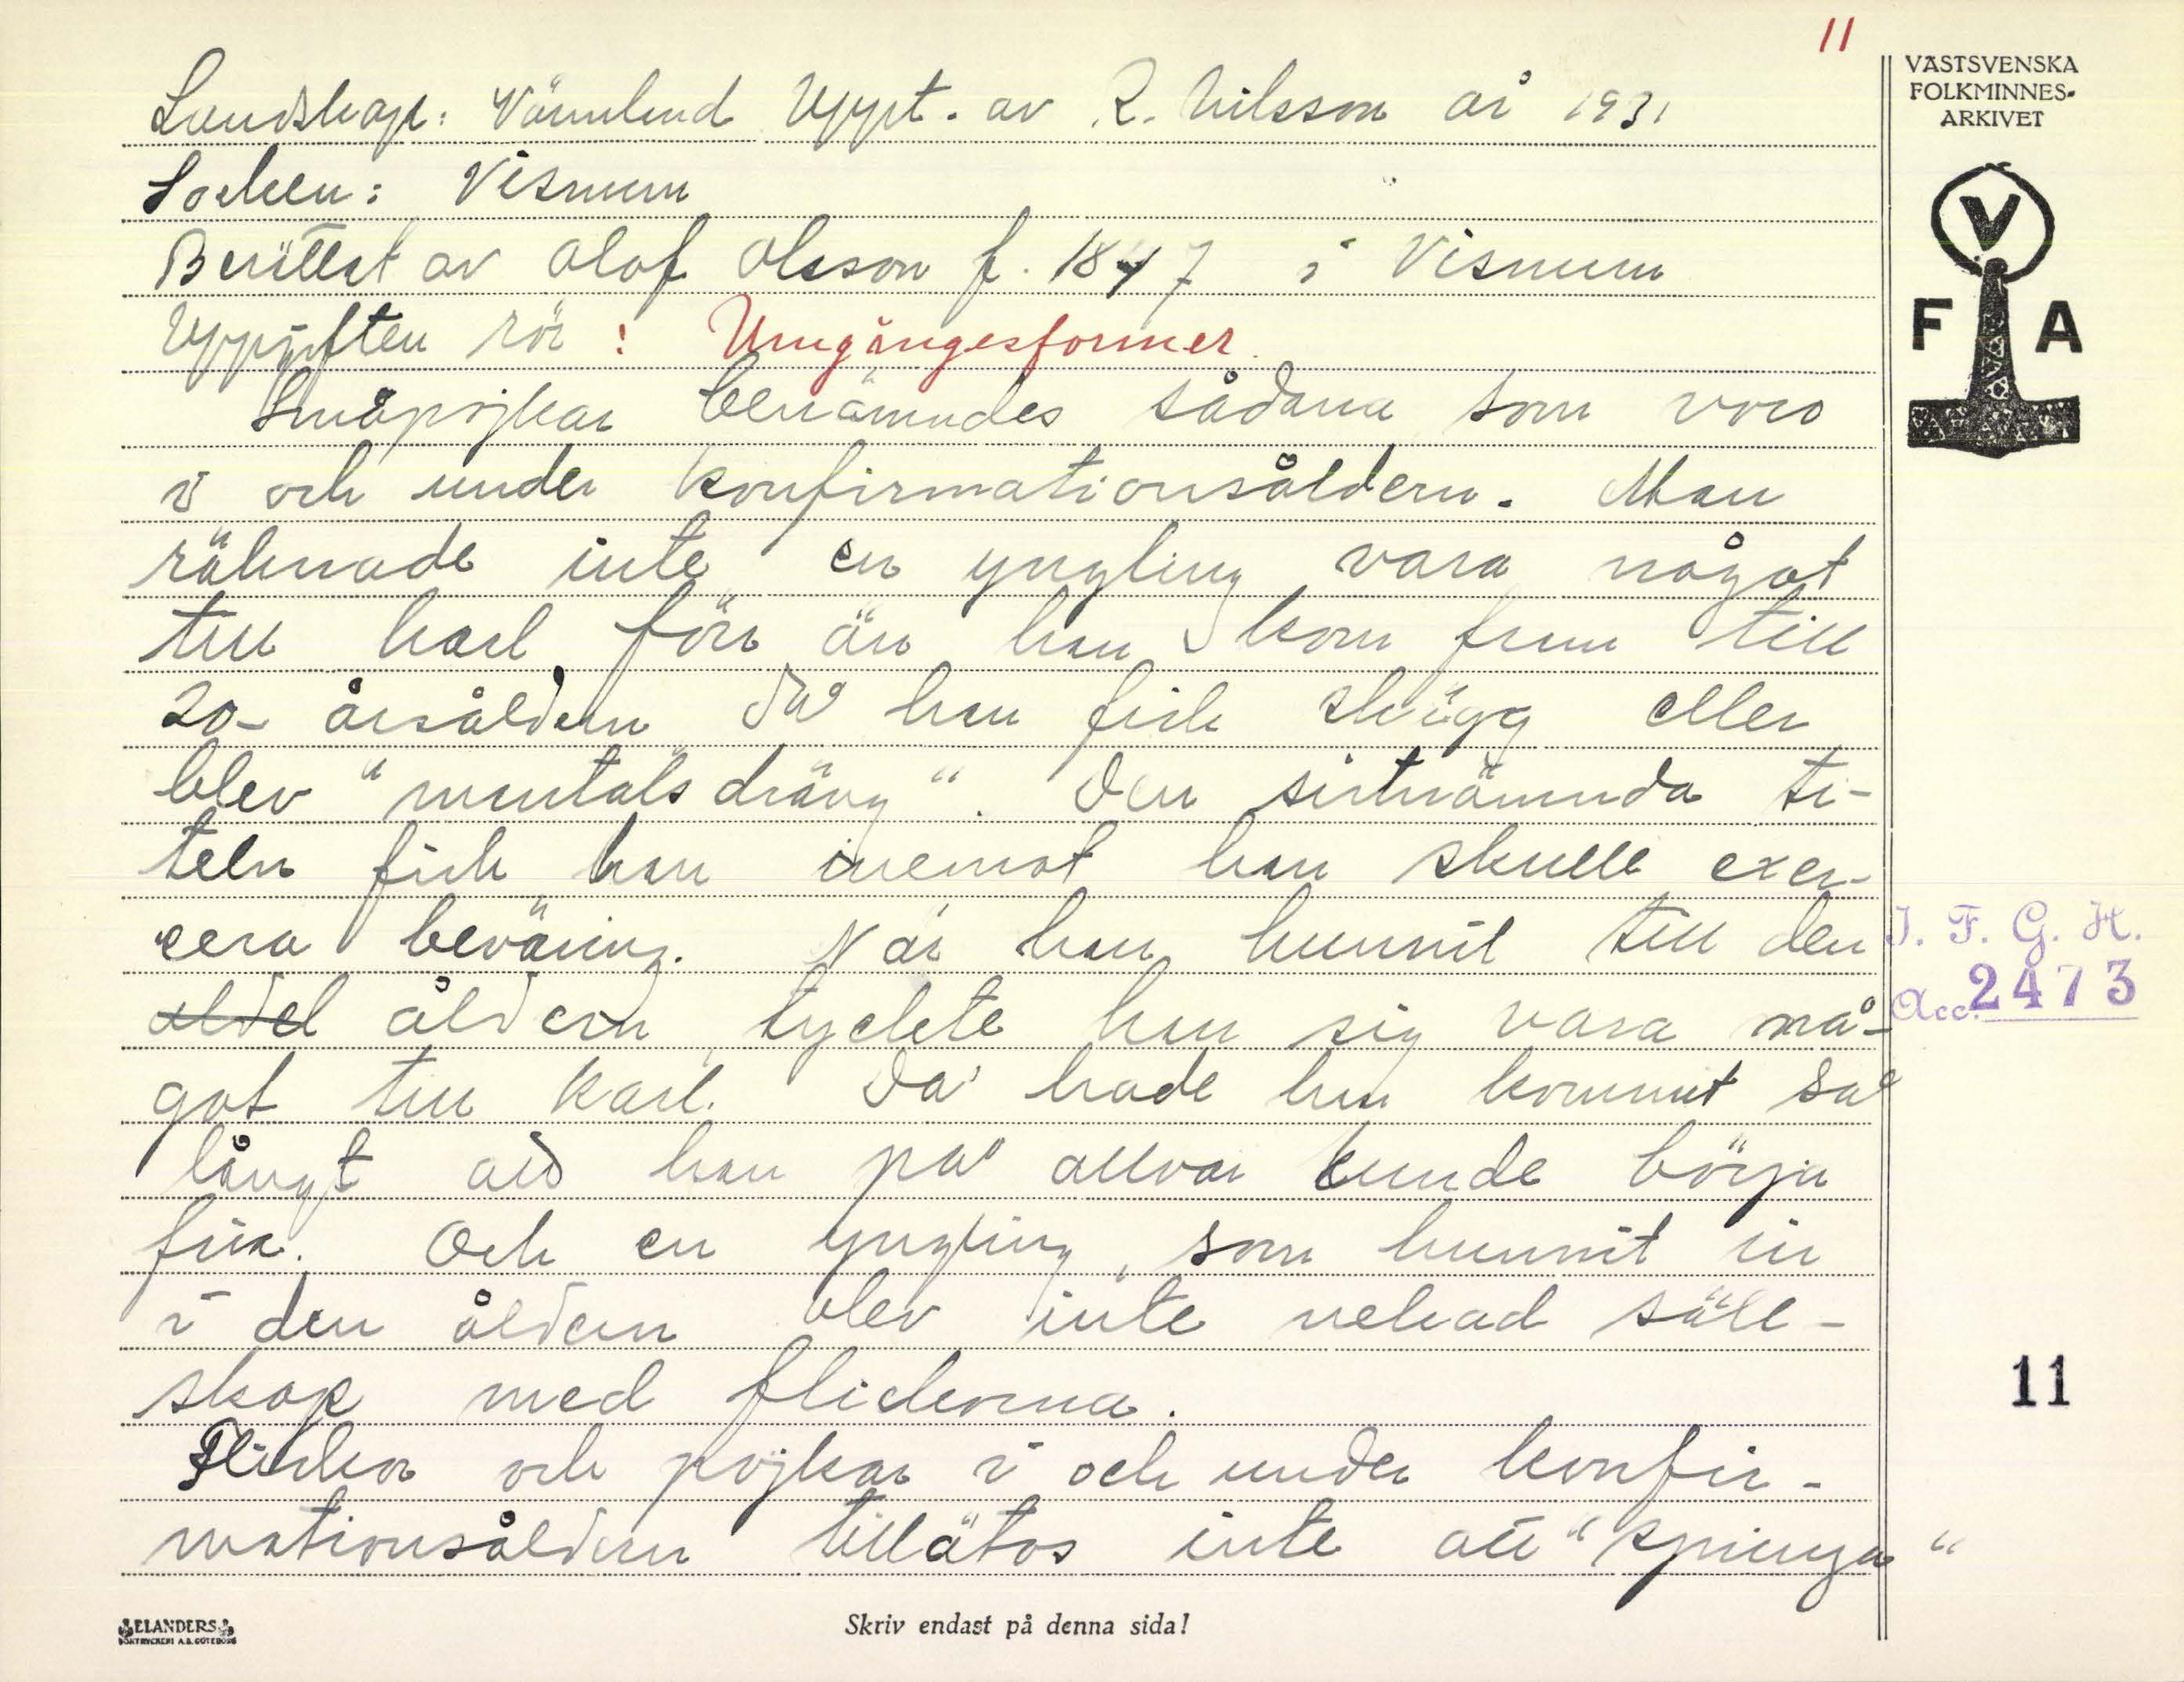 11
VÄSTSVENSKA
FOLKMINNES-
ARKIVET
V
F A
Landskap: Värmland Uppt. av R. Nilsson år 1931
Socken: Visnum
Berättat av Olof Olsson f. 1847 i Visnum
Uppgiften rör: Umgängesformer.
Småpojkar benämndes sådana som voro
i och under konfirmationsåldern. Man
räknade inte en yngling vara något
till karl förr än han kom fram till
20-årsåldern då han fick skägg eller
blev "mantalsdräng". Den sistnämnda ti-
teln fick han inemot han skulle exer-
cera beväring. När han hunnit till den
åldern, tyckte han sig vara nå-
got till karl. Då hade han kommit så
långt att han på allvar kunde börja
fria. Och en yngling, som hunnit in
i den åldern blev inte nekad säll-
skap med flickorna.
Flickor och pojkar i och under konfir-
mationsåldern tillätos inte att "springa"
I. F. G. H.
Acc. 2473
11
ELANDERS
BOKTRYCKERI A.B. GÖTEBORG
Skriv endast på denna sida!